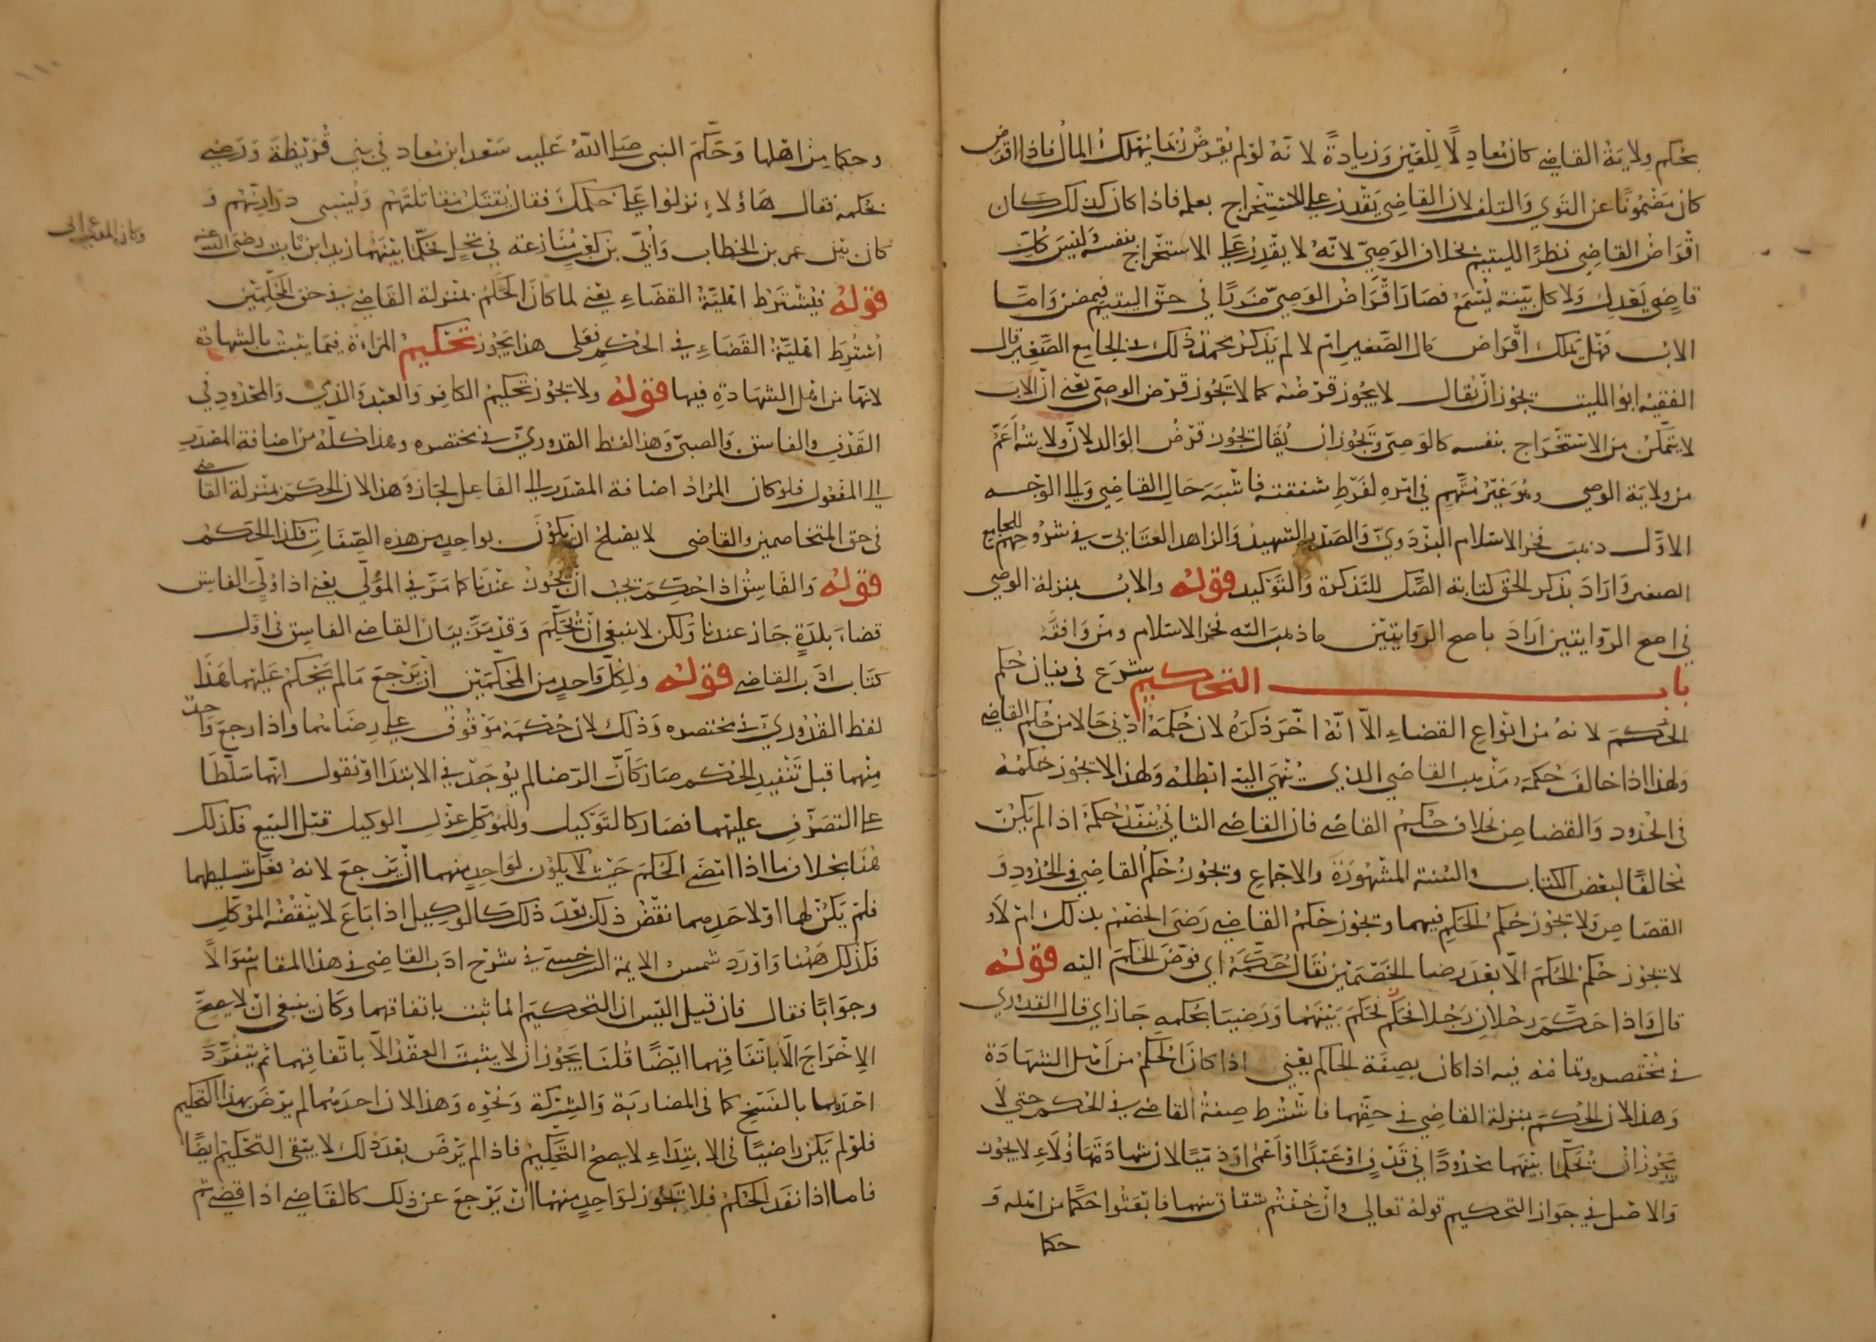 بحكم ولاية القاضي كان معادلًا للعين وزيادةً لانه لو لم يقرض ربما يهلك المال فاذا اقرض
كان مضمونًا عن التوي والتلف لان القاضي يقدر على الاستخراج بعلمه فاذا كان كذلك كان
اقراض القاضي نظرًا لليتيم بخلاف الوصي لانه لا يقدر على الاستخراج بنفسه وليس كل
قاضٍ يعدل ولا كل بينة تسمع فصار اقراض الوصي مترديًا في حق اليتيم فيمضر واما
الاب فهل يملك اقراض مال الصغير ام لا لم يذكر محمد ذلك في الجامع الصغير قال
الفقيه ابو الليث يجوز ان يقال لا يجوز قرضه كما لا تجوز قرض الوصي يعني ان الاب
لا يتمكن من الاستخراج بنفسه كالوصي وتجوز ان يقال تجوز قرض الوالد لان ولايته اعم
من ولاية الوصي وهو غير متهم في امره لفرط شفقته فاشبه حال القاضي والى الوجه
الاول ذهب فخر الاسلام البزدوي والصدر الشهيد والزاهد العتابي في شروحهم للجامع
الصغير واراد بذكر الحق كتابة الصك للتذكرة والتوكيد قوله والاب بمنزلة الوصي
في اصح الروايتين اراد باصح الروايتين ما ذهب اليه فخر الاسلام ومن وافقه
باب التحكيم شرع في بيان حكم
الحكم لانه من انواع القضاء الا انه اخر ذكره لان حكمه ادنى حالا من حكم القاضي
ولهذا اذا خالف حكمه مذهب القاضي الذي ينهى اليه ابطله ولهذا لا يجوز حكمه
في الحدود والقصاص بخلاف حكم القاضي فان القاضي الثاني ينفذ حكمه اذا لم يكن
مخالفًا لبعض الكتاب والسنة المشهورة والاجماع وتجوز حكم القاضي في الحدود و
القصاص ولا تجوز حكم الحكم فيهما وتجوز حكم القاضي رضي الخصم بذلك ام لا و
لا تجوز حكم الحكم الا بعد رضا الخصمين يقال حكمه اي فوض الحكم اليه قوله
قال واذا حكم رجلان رجلا فحكم بينهما ورضيا بحكمه جاز اي قال القدوري
في مختصره وتمامه فيه اذا كان بصفة الحاكم يعني اذا كان الحكم من اهل الشهادة
وهذا لان الحكم بمنزلة القاضي في حقهما فاشترط صفة القاضي في الحكم حتى لا
يجوز ان تحكما بينهما محدودًا في قذف او عبدًا او اعمى او ذميًا لان شهادة هؤلاء لا يجوز
والاصل في جواز التحكيم قوله تعالى وان خفتم شقاق بينهما فابعثوا حكما من اهله و
حكما
وحكما من اهلها وحكم النبي صلى الله عليه سعد ابن معاد في بني قريظة ورضي
بحكمه فقال هاؤلاء نزلوا على حكمك فقال يقتل مقاتلتهم وليسبى ذراريهم و
كان بين عمر بن الخطاب وأبي بن كعب منازعة في نخل فحكما بينهما زيد ابن ثابت رضي الله عنه
قوله فيشترط اهلية القضاء يعني لما كان الحكم بمنزلة القاضي في حق المحكمين
اشترط اهلية القضاء في الحكم فعلى هذا يجوز تحكيم المراة فيما يثبت بالشهادة
لانها من اهل الشهادة فيها قوله ولا يجوز تحكيم الكافر والعبد والذمي والمحدود في
القذف والفاسق والصبي وهذا لفظ القدوري في مختصره وهذا كله من اضافة المصدر
الى المفعول فلو كان المراد اضافة المصدر الى الفاعل لجاز وهذا لان الحكم بمنزلة القاضي
في حق المتخاصمين والقاضي لا يصلح ان يكون بواحد من هذه الصفات فكذا الحكم
قوله والفاسق اذا حكم يجب ان تجوز عندنا كما مر في المولى يعني اذا ولي الفاسق
قضاء بلدة جاز عندنا ولكن لا ينبغي ان يحكم وقد مر بيان القاضي الفاسق في اول
كتاب ادب القاضي قوله ولكل واحد من المحكمين ان يرجع ما لم يحكم عليهما هذا
لفظ القدوري في مختصره وذلك لان حكمه موقوف على رضاهما واذا رجع واحد
منهما قبل تنفيد الحكم صار كأن الرضا لم يوجد في الابتدا او نقول انهما سلطا
على التصرف عليهما فصار كالتوكيل وللموكل عزل الوكيل قبل البيع فكذلك
هنا بخلاف ما اذا امضى الحكم حيث لا يكون لواحد منهما ان يرجع لانه فعل بتسليطهما
فلم يكن لهما او لاحدهما نقض ذلك بعد ذلك كالوكيل اذا باع لا ينقضه الموكل
فكذلك ههنا واورد شمس الايمة السرخسي في شرح ادب القاضي في هذا المقام سؤالًا
وجوابًا فقال فان قيل اليس ان التحكيم انما ثبت باتفاقهما وكان ينبغي ان لا يصح
الاخراج الا باتفاقهما ايضًا قلنا يجوز ان لا يثبت العقد الا باتفاقهما ثم يتفرد
احدهما بالفسخ كما في المضاربة والشركة ونحوه وهذا لان احدهما لم يرض بهذا التحكيم
فلو لم يكن راضيًا في الابتداء لا يصح التحكيم فاذا لم يرض بعد ذلك لا يبقى التحكيم ايضًا
فاما اذا نفد الحكم فلا تجوز لواحد منهما ان يرجع عن ذلك كالقاضي اذا قضى ثم